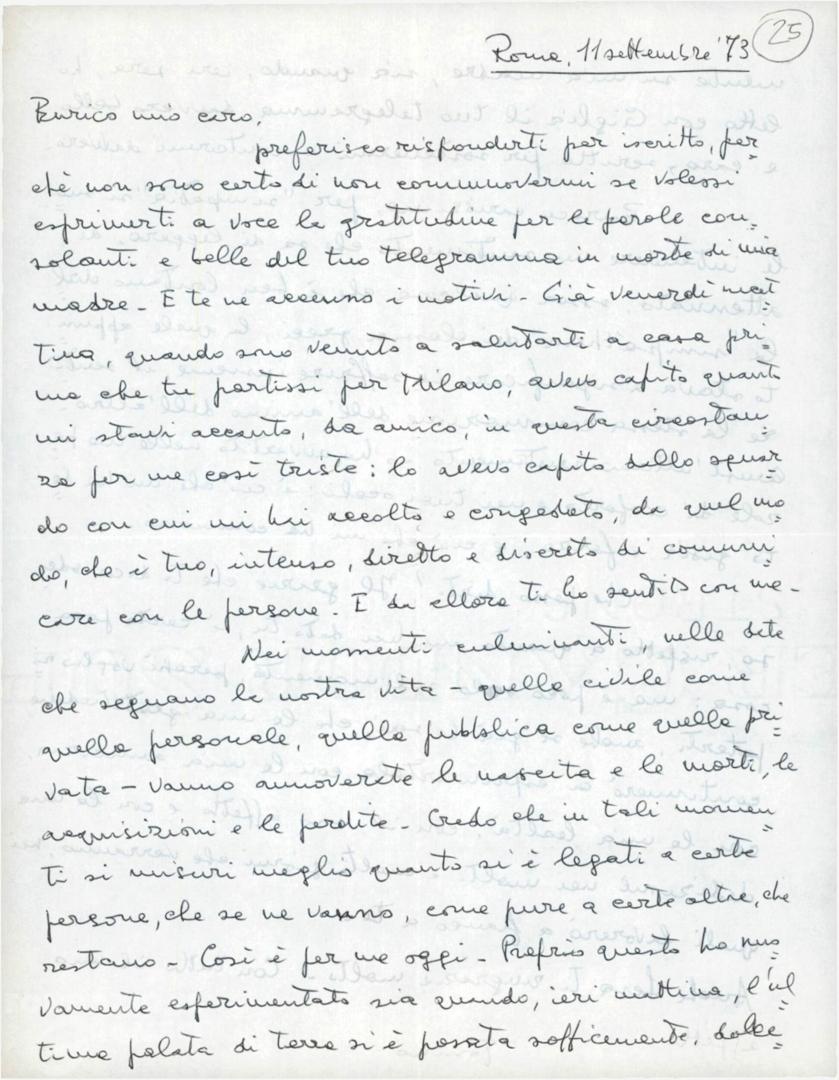 25
Roma, 11 settembre '73
Enrico mio caro,
preferisco risponderti per iscritto, per=
chè non sono certo di non commuovermi se volessi
esprimerti a voce la gratitudine per le parole con=
solanti e belle del tuo telegramma in morte di mia
madre - E te ne accenno i motivi - Già venerdì mat=
tina, quando sono venuto a salutarti a casa pri=
ma che tu partissi per Milano, avevo capito quanto
mi stavi accanto, da amico, in questa circostan=
za per me così triste: lo avevo capito dallo sguar=
do con cui mi hai accolto e congedato, da quel mo=
do, che è tuo, intenso, diretto e discreto di comuni=
care con le persone. E da allora ti ho sentito con me -
Nei momenti culminanti, nelle date
che segnano la nostra vita - quella civile come
quella personale, quella pubblica come quella pri=
vata - vanno annoverate le nascite e le morti, le
acquisizioni e le perdite - Credo che in tali momen=
ti si misuri meglio quanto si è legati a certe
persone, che se ne vanno, come pure a certe altre, che
restano - Così è per me oggi - Proprio questo ho nuo=
vamente esperimentato sia quando, ieri mattina, l'ul=
tima palata di terra si è posata sofficemente, dolce=